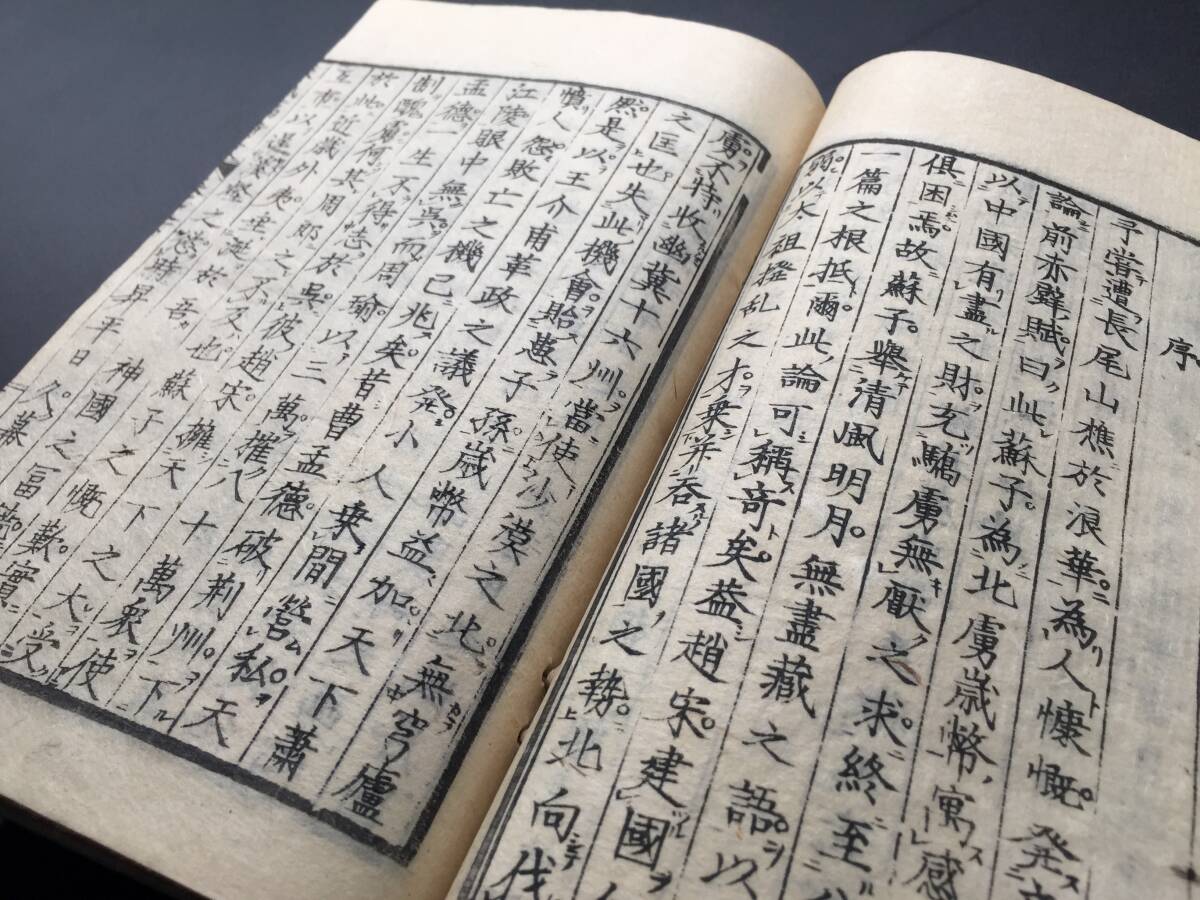 序
予嘗遭長尾山樵於浪華為人慷慨発
論前赤壁賦曰此蘇子為北虜歳幣寓感
以中國有盡之財充驕虜無厭之求終至
俱困焉故蘇子舉清風明月無盡藏之語以
一篇之根抵爾此論可稱奇矣蓋趙宋建國
弱以太祖撥乱之才乗并吞諸國之勢北向伐
虜不特收幽冀十六州當使沙漠之北無穹廬
之匡也失此機會貽患子孫歳幣益加天下蕭
然是以王介甫革政之議発小人乗間營私天
憤人怨敗亡之機已兆矣昔曹孟德破荊州下
江陵眼中無呉而周瑜以三萬摧八十萬衆使
孟德一生不得志於呉彼趙宋擁天下之大受
制醜虜何其周郎之不及也蘇子之慨歎實
於此近歳外夷生於吾神國之富
互市以逞之慾時昇平日久幕